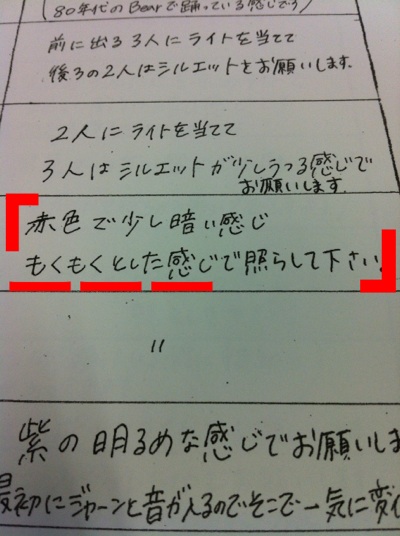 (80年代のBearで踊っている感じです)
前に出る3人にライトを当てて
後ろの2人はシルエットをお願いします.
2人にライトを当てて
3人はシルエットが少しうつる感じで
お願いします.
赤色で少し暗い感じ
もくもくとした感じで照らして下さい.
〃
紫の明るめな感じでお願いしま
最初にジャーンと音が入るのでそこで一気に変